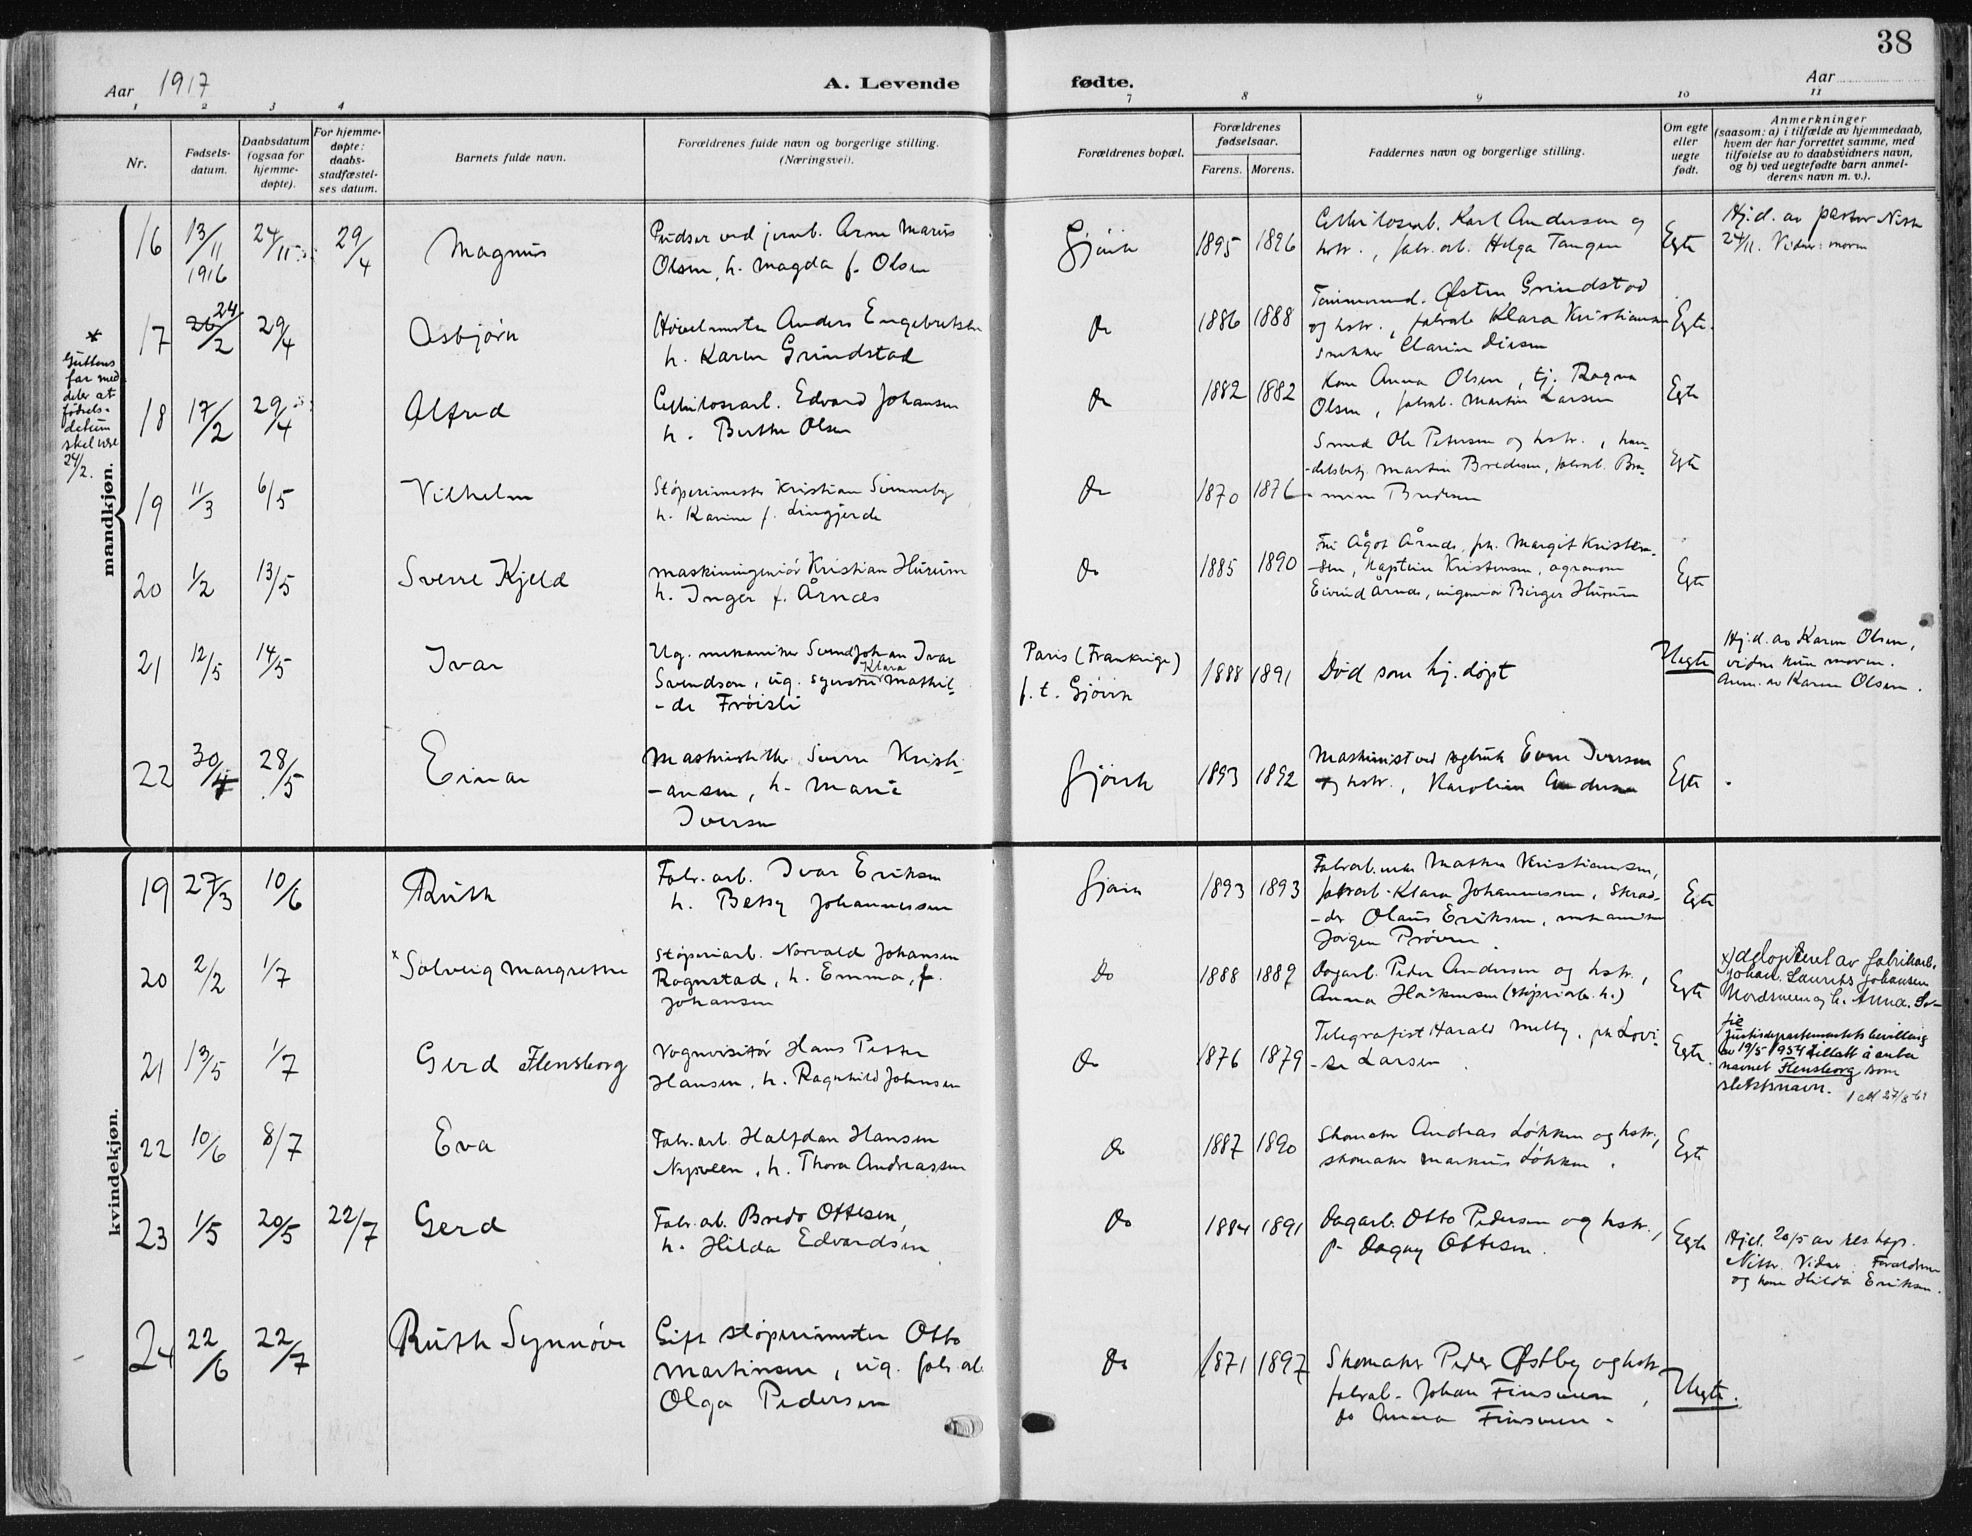 38
Aar 1917
A. Levende fødte.
Aar
1 2 3 4 7 8 9 10 11
Nr.
Fødsels-
datum.
Daabsdatum
(ogsaa for
hjemme-
døpte).
For hjemme-
døpte:
daabs-
stadfæstel-
ses datum.
Barnets fulde navn.
Forældrenes fulde navn og borgerlige stilling.
(Næringsvei).
Forældrenes bopæl.
Forældrenes
fødselsaar.
Farens. Morens.
Faddernes navn og borgerlige stilling.
Om egte
eller
uegte
født.
Anmerkninger
(saasom: a) i tilfælde av hjemmedaab,
hvem der har forrettet samme, med
tilføielse av to daabsvidners navn,
og b) ved uegtefødte barn anmel-
derens navn m. v.).
mandkjøn.
* Guttens
far med
deler at
fødsels-
datum
skal være
24/2.
16 13/11 1916 24/11 29/4 Magnus
Pudser ved jernb. Arne Marius
Olsen, h. Magda f. Olsen
Gjøvik 1895 1896
Cellulosearb. Karl Andersen og
hstr., fabr. arb. Helga Tangen
Egte
Hj.d. av pastor
24/11. Vidner: moren
17 26/2 24 29/4 Asbjørn
Høvelmester Anders Engebretsen
h. Karen Grindstad
Do 1886 1888
Tømmermd. Østen Grindstad
og hstr., fabrarb Klara Kristiansen
snekker
Egte.
18 17/2 29/4 Alfred
Cellulosearb. Edvard Johansen
h. Berthe Olsen
Do 1882 1882
Kone Anna Olsen, tj. Ragna
Olsen, fabrab. Martin Larsen
Egte
19 11/3 6/5 Vilhelm
Støperimester Kristian
h. Karine f. Lingjerde
Do 1870 1876
Smed Ole Petersen og hstr., han-
-delsbetj. Martin Bredesen, fabrab.
Bredesen
Egte
20 1/2 13/5 Sverre Kjeld
Maskiningeniør Kristian Hurum
h. Inger f. Årnes
Do 1885 1890
Frk. Margit Kristen-
-sen, kaptein Kristensen, agronom
Eivind Årnes, ingeniør Birger Hurum
Egte
21 12/5 14/5 Ivar
Ug. mekaniker Svend Johan Ivar
Svendsen, ug. syerske Klara Mathil-
-de Frøisli
Paris (Frankrige)
f. t. Gjøvik
1888 1891
Død som hj. døpt
Uegte
Hj.d. av Karen Olsen,
vidne kun moren.
Anm. av Karen Olsen.
22 30/4 28/5 Einar
Sverre Kristi-
-ansen, h. Marie
Iversen
Gjøvik 1893 1892
Maskinist ved Even Iversen
og hstr., Karoline Andersen
Egte
kvindekjøn.
19 27/3 10/6 Ruth
Fabr. arb. Ivar Eriksen
h. Betsy Johannessen
Gjøvik 1893 1893
Fabrarb. Mathea Kristiansen,
fabrarb. Klara Johannessen, skræd-
-der Olaus Eriksen, mekaniker
Jørgen Prøven.
Egte
20 2/2 1/7 x Solveig Margrethe
Støperiarb. Norvald Johansen
Rognstad, h. Emma, f.
Johansen
Do 1888 1889
Dagarb. Peder Andersen og hstr.,
Anna Håkensen (støperiarb. h.)
Egte
x) adoptert av fabrikarb.
Johan Laurits Johansen
Nordsveen og h. Anna So-
fie
21 13/5 1/7 Gerd Flensborg
Vognvisitør Hans Petter
Hansen, h. Ragnhild Johnsen
Do 1876 1879
Telegrafist Harald Melby, frk Lovi-
-se Larsen.
Egte.
Justisdepartementets bevilling
av 19/5 1954 tillatt å anta
navnet Flensborg som
slektsnavn.
22 10/6 8/7 Eva
Fabr. arb. Halfdan Hansen
Nysveen, h. Thora Andreassen
Do 1887 1890
Skomaker Andreas Løkken og hstr.,
skomaker Markus Løkken.
Egte
23 1/5 20/5 22/7 Gerd
Fabr. arb. Bredo Ottesen,
h. Hilda Edvardsen
Do 1884 1891
Dagarb. Otto Pedersen og hstr.,
p. Dagny Ottesen.
Egte
Hjd. 20/5 av res. kap.
Vidner: Forældrene
og kone Hilda Eriksen.
24 22/6 22/7 Ruth Synnøve
Gift støperimester Otto
Martinsen, ug. fabr. arb.
Olga Pedersen
Do 1871 1897
Skomaker Peder Østby og hstr
fabrab. Johan Finsveen,
do Anna Finsveen.
Uegte.